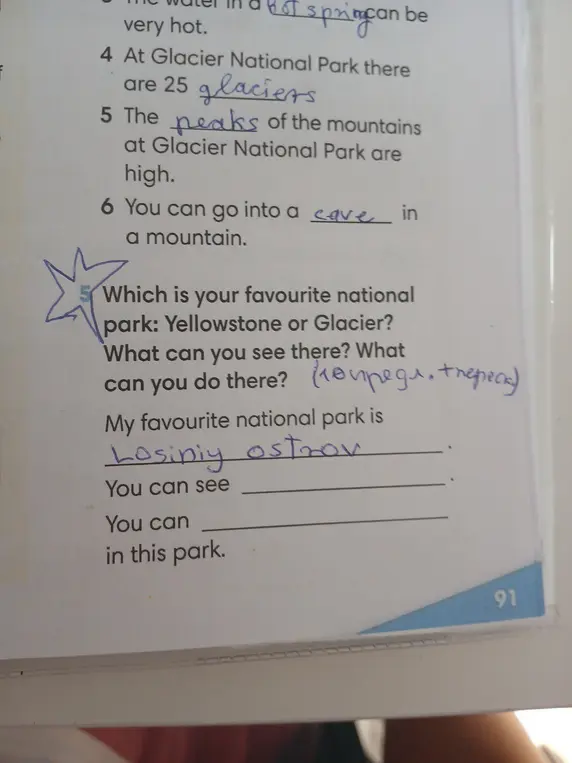 3 The water in a hot spring can be
very hot.
4 At Glacier National Park there
are 25 glaciers
5 The peaks of the mountains
at Glacier National Park are
high.
6 You can go into a cave in
a mountain.
5 Which is your favourite national
park: Yellowstone or Glacier?
What can you see there? What
can you do there? (10 предл. + пересказ)
My favourite national park is
Losiniy ostrov.
You can see .
You can
in this park.
91